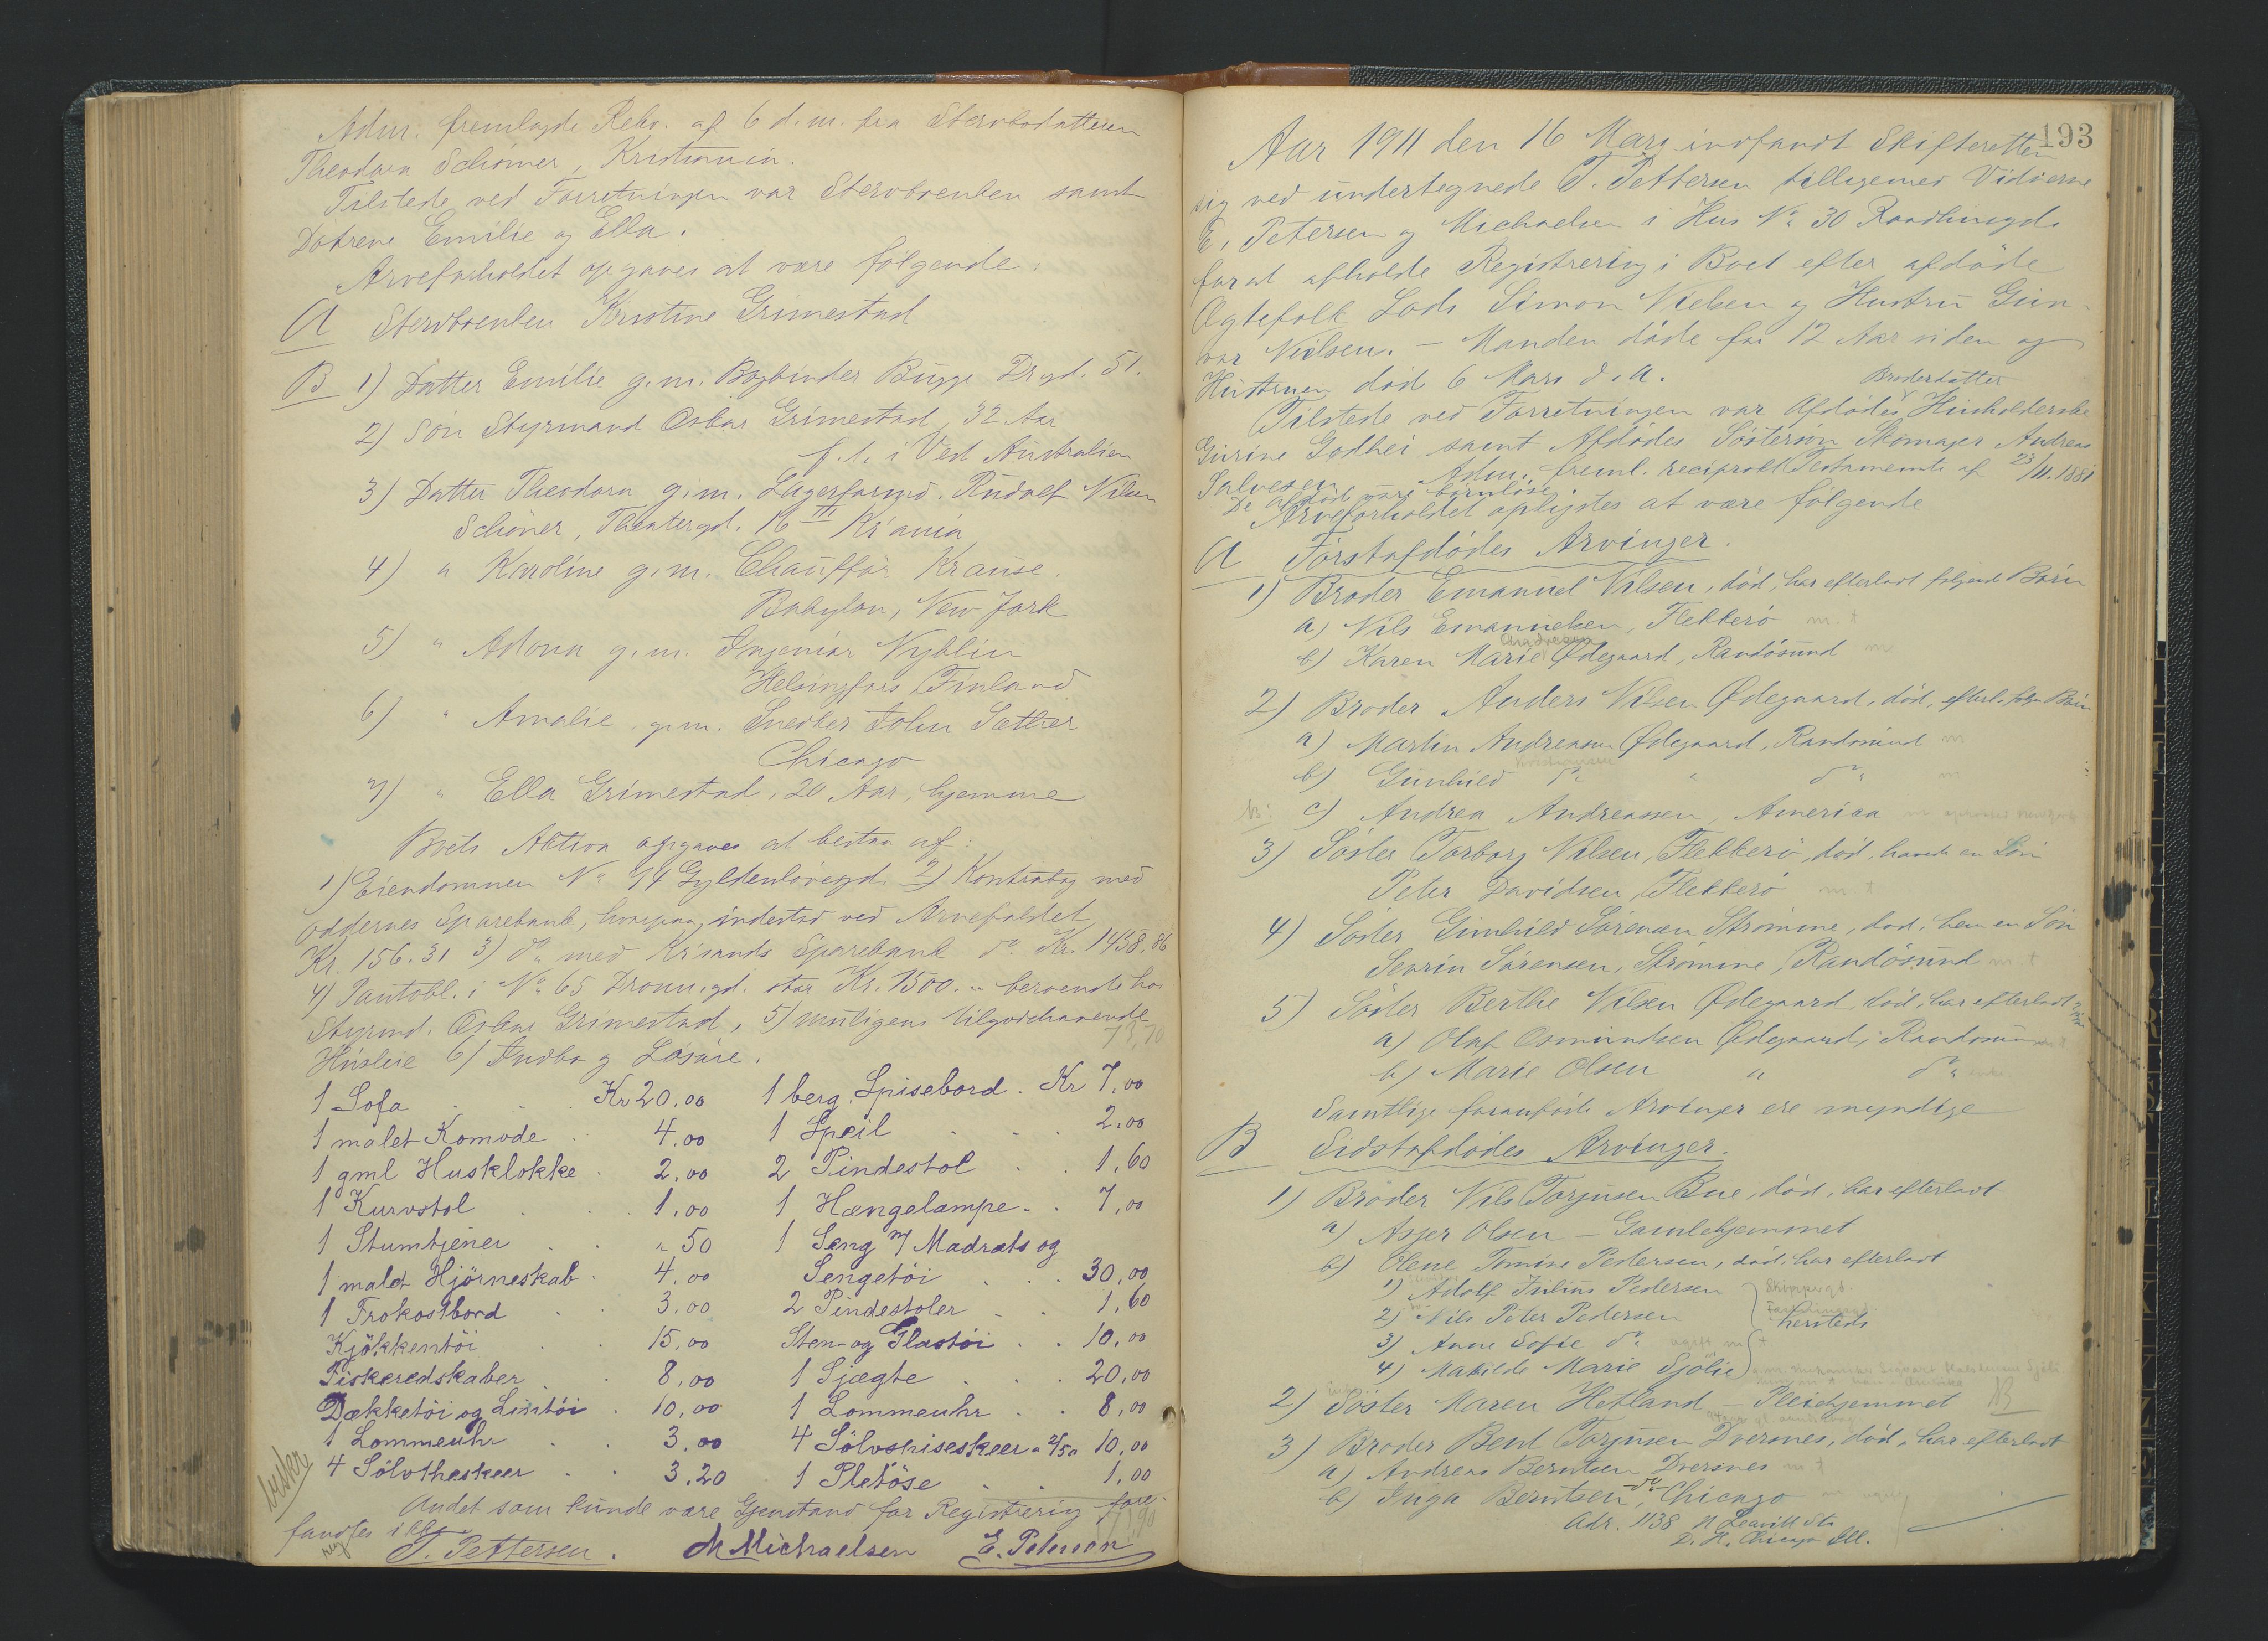 Adm. fremlagde Rekv. af 6 d.m. fra Stervbodatteren
Theodora Schöiner, Kristiania.
Tilstede ved Forretningen var Stervboenken samt
Döttrene Emilie og Ella.
Arveforholdet opgaves at være følgende:
A Stervboenken Kristine Grimestad
B 1) Datter Emilie g.m. Bogbinder Bugge Dr.gd. 51.
2) Sön Styrmand Oskar Grimestad, 32 Aar
f.t. i Vest Australien
3) Datter Theodora g.m. Lagerformd. Rudolf Nilsen
Schöiner, Theatergd. 16 III Kr'ania
4) " Karoline g.m. Chauffør Krause.
Babylon, New York
5) " Adona g.m. Ingeniør Nyblin
Helsingfors, Finland
6) " Amalie g.m. Snedker John Sæther
Chicago
7) " Ella Grimestad, 20 Aar, hjemme
Boets Aktiva opgaves at bestaa af:
1) Eiendommen No 14 Gyldenlövesgd. 2) Kontrabog med
Oddernes Sparebank, hvorpaa indestod ved Arvefaldet
Kr. 156.31 3) do med Kr'sands Sparebank do Kr. 1458.86
4) Pantobl. i No 65 Dronn.gd. stor Kr. 1500.- beroende hos
Styrmd. Oskar Grimestad, 5) muligens tilgodehavende
Husleie 6) Indbo og Lösöre.
73,70
1 Sofa . . Kr 20.00 1 berg. Spisebord . Kr 7,00
1 malet Komode . . 4.00 1 Speil . . . 2.00
1 gml Husklokke . 2,00 2 Pindestol . . 1,60
1 Kurvstol . . . 1.00 1 Hængelampe . . 7,00
1 Stumtjener . . " 50 1 Seng m/ Madrats og
1 malet Hjörneskab . 4.00 Sengetöi . . . 30,00
1 Frokostbord . . 3.00 2 Pindestoler . . 1,60
Kjökkentöi . . 15,00 Sten- og Glastöi . . 10,00
Fiskeredskaber . . 8,00 1 Sjægte . . . 20,00
Dækketöi og Lintöi . 10,00 1 Lommeuhr . . 8,00
1 Lommeuhr . . 3.00 4 Sölvspiseskeer a 2/50 10,00
4 Sölvtheskeer . . 3.20 1 Pletöse . . 1,00
Andet som kunde være Gjenstand for Registrering fore-
fandtes ikke.
T. Pettersen. M Michaelsen E. Petersen
193
Aar 1911 den 16 Mars indfandt Skifteretten
sig ved undertegnede T. Pettersen tilligemed Vidnerne
E. Petersen og Michaelsen i Hus No 30 Raadhusgd.
forat afholde Registrering i Boet efter afdöde
Ægtefolk Lods Simon Nielsen og Hustru Gun-
vor Nielsen. – Manden döde for 12 Aar siden og
Hustruen död 6 Mars d.A.
Broderdatter
Tilstede ved Forretningen var Afdödes Husholderske
Gurine Godhei samt Afdödes Söstersön Skomager Andreas
Salvesen. Adm. freml. reciprokt Testamente af 23/11.1881
De afdöde vare barnlöse
Arveforholdet oplystes at være følgende
A Förstafdödes Arvinger.
1) Broder Emanuel Nilsen, död, har efterladt følgende Börn
a) Nils Emanuelsen, Flekkerö m. t
b) Karen Marie Ødegaard, Randösund m
2) Broder Anders Nilsen Ødegaard, död, efterl. følg. Börn
a) Martin Andreasen Ødegaard, Randösund m
b) Gunhild do " do m
c) Andrea Andreassen, America
3) Söster Torborg Nilsen, Flekkerö, död, havde en Sön
Peter Davidsen, Flekkerö m. t
4) Söster Gunhild Sörensen Strömme, död, hun en Sön
Severin Sörensen, Strömme, Randösund m. t
5) Söster Berthe Nilsen Ødegaard, död, har efterladt
a) Olaf Osmundsen Ødegaard, Randösund
b) Marie Olsen " do
Samtlige foranförte Arvinger ere myndige
B Sidstafdödes Arvinger.
1) Broder Nils Torjusen Bue, död, har efterladt
a) Asser Olsen – Gamlehjemmet
b) Olene Tomine Pedersen, död, har efterladt
1) Adolf Julius Pedersen
2) Nils Peter Pedersen hersteds
3) Anne Sofie do
4) Mathilde Marie Sjölie
2) Söster Maren Hetland – Pleiehjemmet
3) Broder Bent Torjusen Dversnes, död, har efterladt
a) Andreas Berntsen Dversnes m t
b) Inga Berntsen, Chicago
Adr. 1138 N Leavitt Str
Chicago Ill.